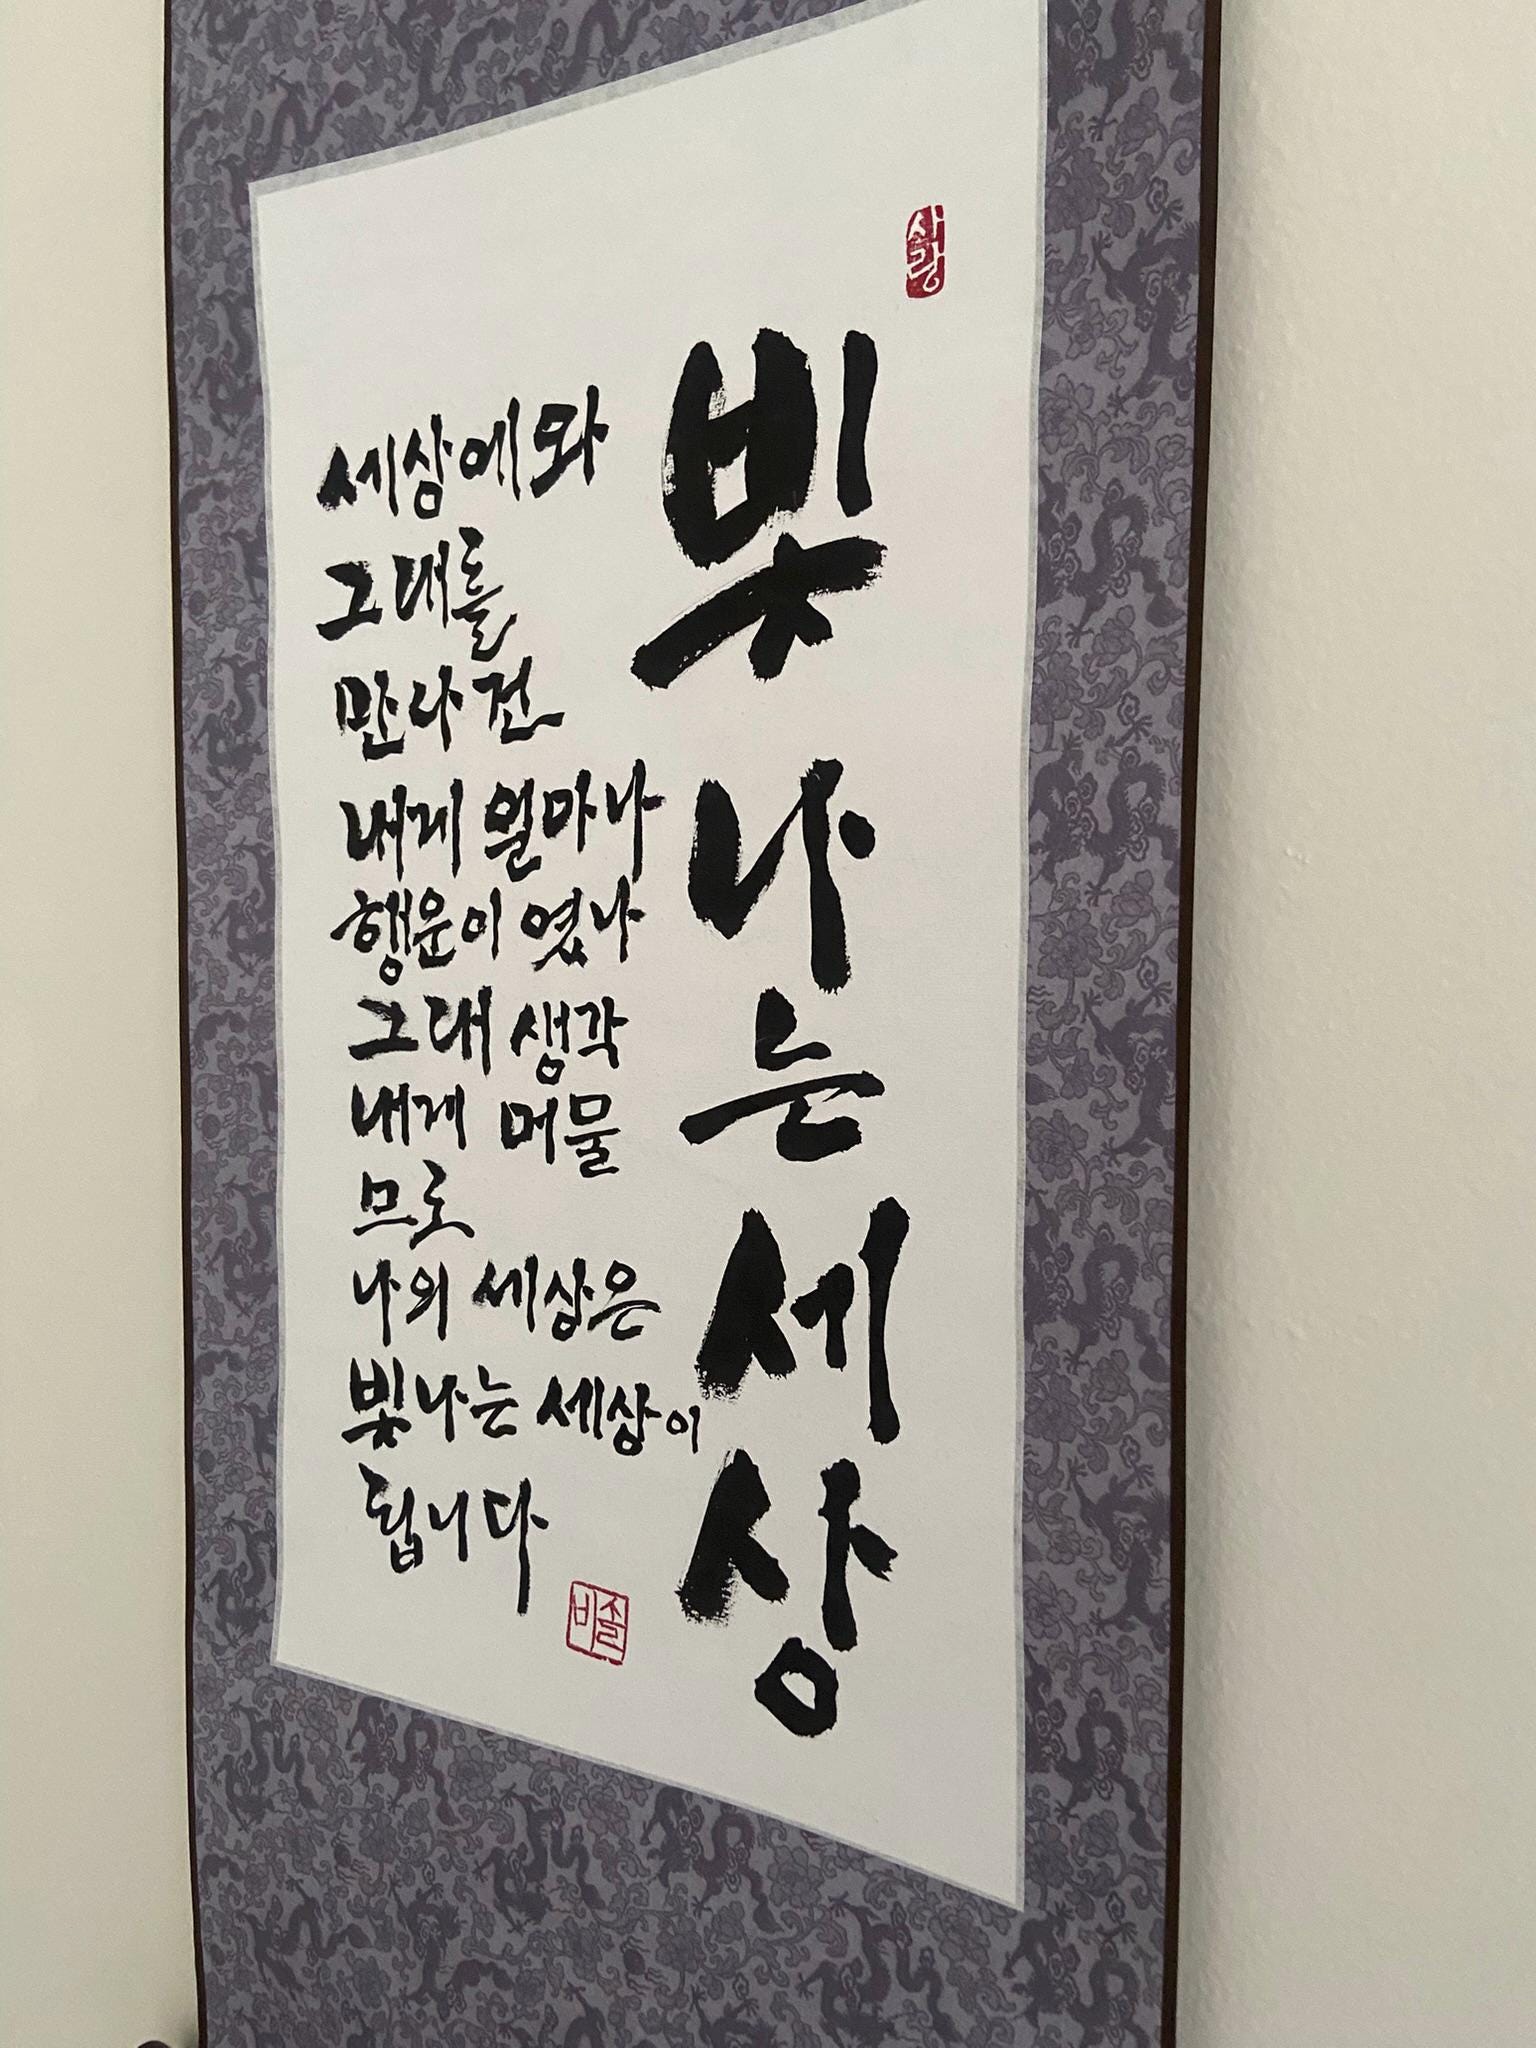 사랑
빛나는세상
세상에와
그대를
만나건
내게 얼마나
행운이 였나
그대 생각
내게 머물
므로
나의 세상은
빛나는 세상이
됩니다